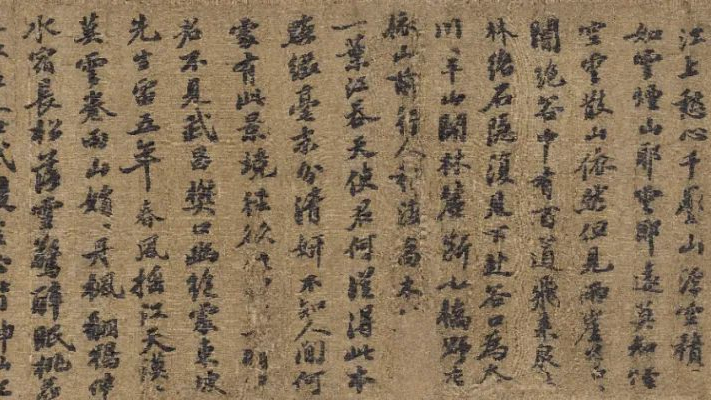 江上愁心千疊山浮空積
如雲煙山耶雲耶遠莫知煙
空雲散山依然但見兩崖蒼ゝ
闇絶谷中有百道飛來
林絡石隱復見下赴谷口為
川ゝ平山開林麓斷小橋野店
依山前行人稍度喬木
一葉江吞天使君何從得此本
點綴毫末分清妍不知人間何
處有此境徑欲
君不見武昌樊口幽絶處東坡
先生留五年春風搖江天漠ゝ
莫雲卷雨山娟ゝ丹楓翻鴉伴
水宿長松落雪驚醉眠桃花